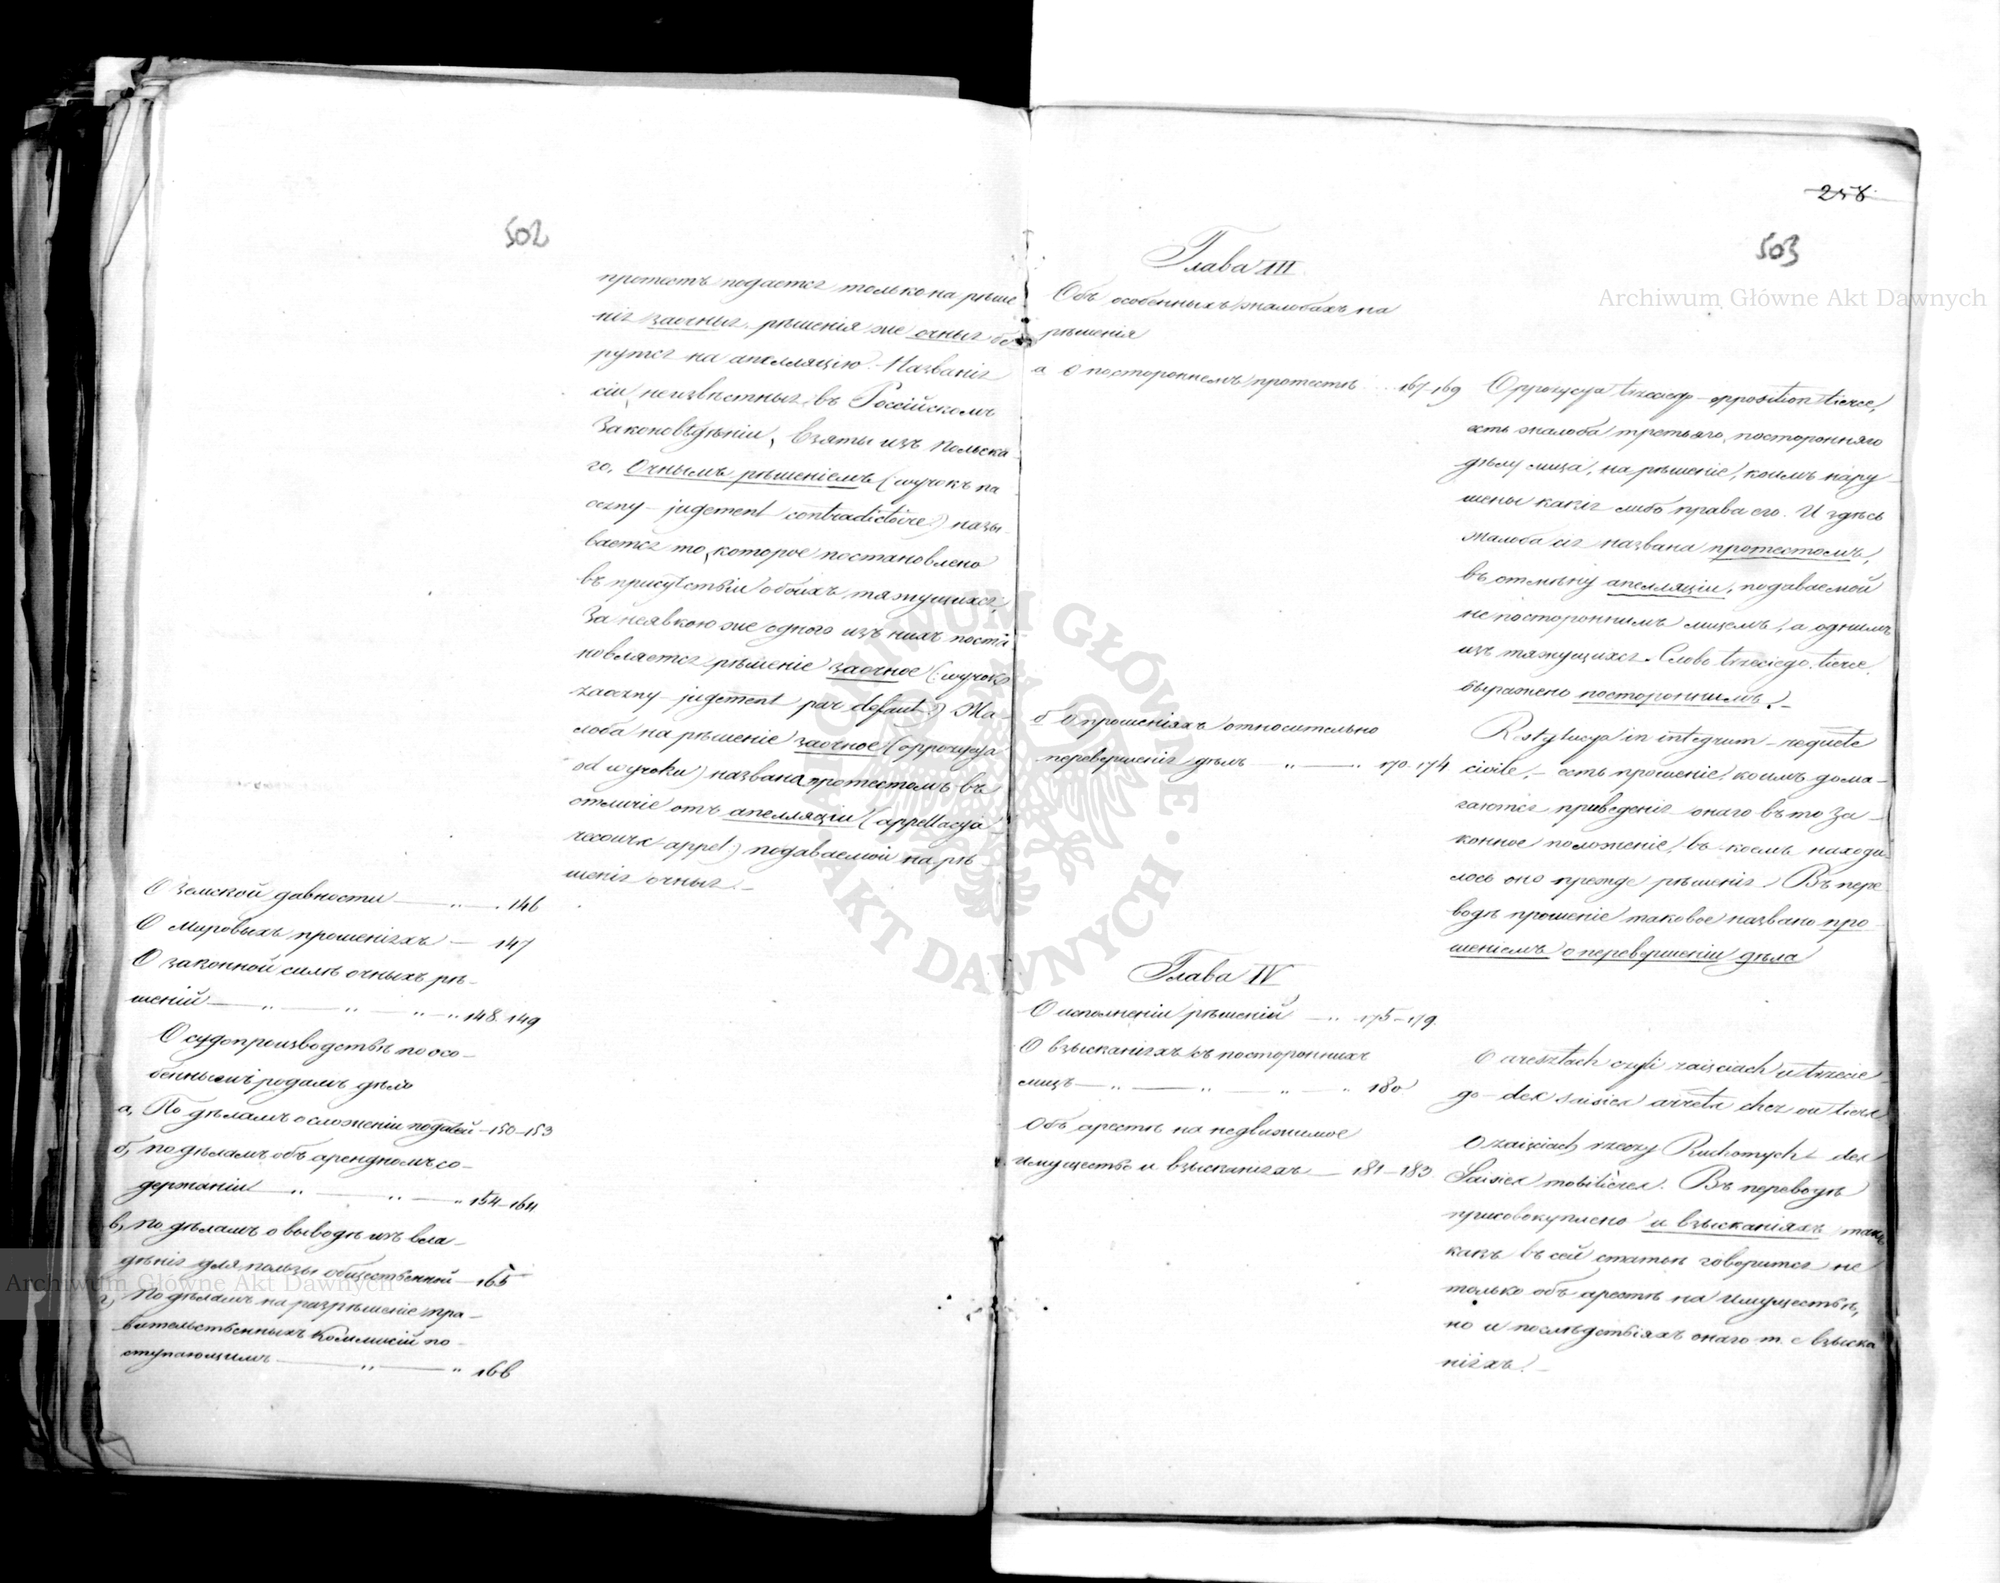 502
протестъ подается только на рѣше
нія заочныя, рѣшенія же очныя бе
рутся на апелляцію. Названія
сіи, неизвѣстныя въ Россійскомъ
Законовѣдѣніи, взяты изъ Польска
го. Очнымъ рѣшеніемъ (wyrok na
oczny – jugement contradictoire) назы
вается то, которое постановлено
въ присутствіи обоихъ тяжущихся,
За неявкою же одного изъ нихъ поста
новляется рѣшеніе заочное (: wyrok
zaoczny – jugement par defaut:) Жа-
лоба на рѣшеніе заочное (oppozycya
od wyroku) названа протестомъ въ
отличіе отъ апелляціи (appellacya
appel:) подаваемой на рѣ-
шенія очныя. –
О Земской давности — " — . 146
О Мировыхъ прошеніяхъ — 147
О законной силѣ очныхъ рѣ-
шеній — " — " — " — " 148. 149
О судопроизводствѣ по осо-
беннымъ родамъ дѣлъ
а, По дѣламъ о сложеніи податей – 150–153
б, по дѣламъ объ арендномъ со-
держаніи " — " — " 154–164
в, по дѣламъ о выводѣ изъ вла-
дѣнія для пользы общественной – 165
г, По дѣламъ на разрѣшеніе пра-
вительственныхъ Коммисій по-
ступающимъ — " — " 166
258
503
Глава III.
Объ особенныхъ жалобахъ на
рѣшенія
а О постороннемъ протестѣ . . . 167–169
Oppozycya trzeciego – opposition tierce,
есть жалоба третьяго, посторонняго
дѣлу лица, на рѣшеніе, коимъ нару-
шены какія либо права его. И здѣсь
жалоба сія названа протестомъ,
въ отмѣну апелляціи, подаваемой
не постороннимъ лицемъ, а однимъ
изъ тяжущихся. Слово trzeciego, tierce,
выражено постороннимъ. –
б О прошеніяхъ относительно
перевершенія дѣлъ — " — " 170–174
Restytucya in integrum – requête
civile, – есть прошеніе, коимъ дома-
гаются приведенія онаго въ то за-
конное положеніе, въ коемъ находи-
лось оно прежде рѣшенія. Въ пере
водѣ прошеніе таковое названо про
шеніемъ о перевершеніи дѣла
Глава IV
О исполненіи рѣшеній — " 175–179.
О взысканіяхъ съ постороннихъ
лицъ — " — " — " — " 180
О aresztach czyli zajęciach u trzecie-
go – des saisies arrêts chez un tiers
Объ арестѣ на недвижимое
имущество и взысканіяхъ — 181–183.
O zajęciach rzeczy Ruchomych – des
Saisies mobilières. Въ переводѣ
присовокуплено и взысканіяхъ такъ
какъ въ сей статьѣ говорится не
только объ арестѣ на имуществѣ,
но и послѣдствіяхъ онаго т. е взыска
ніяхъ. –
Archiwum Główne Akt Dawnych
Archiwum Główne Akt Dawnych
ARCHIWUM GŁÓWNE · AKT DAWNYCH ·